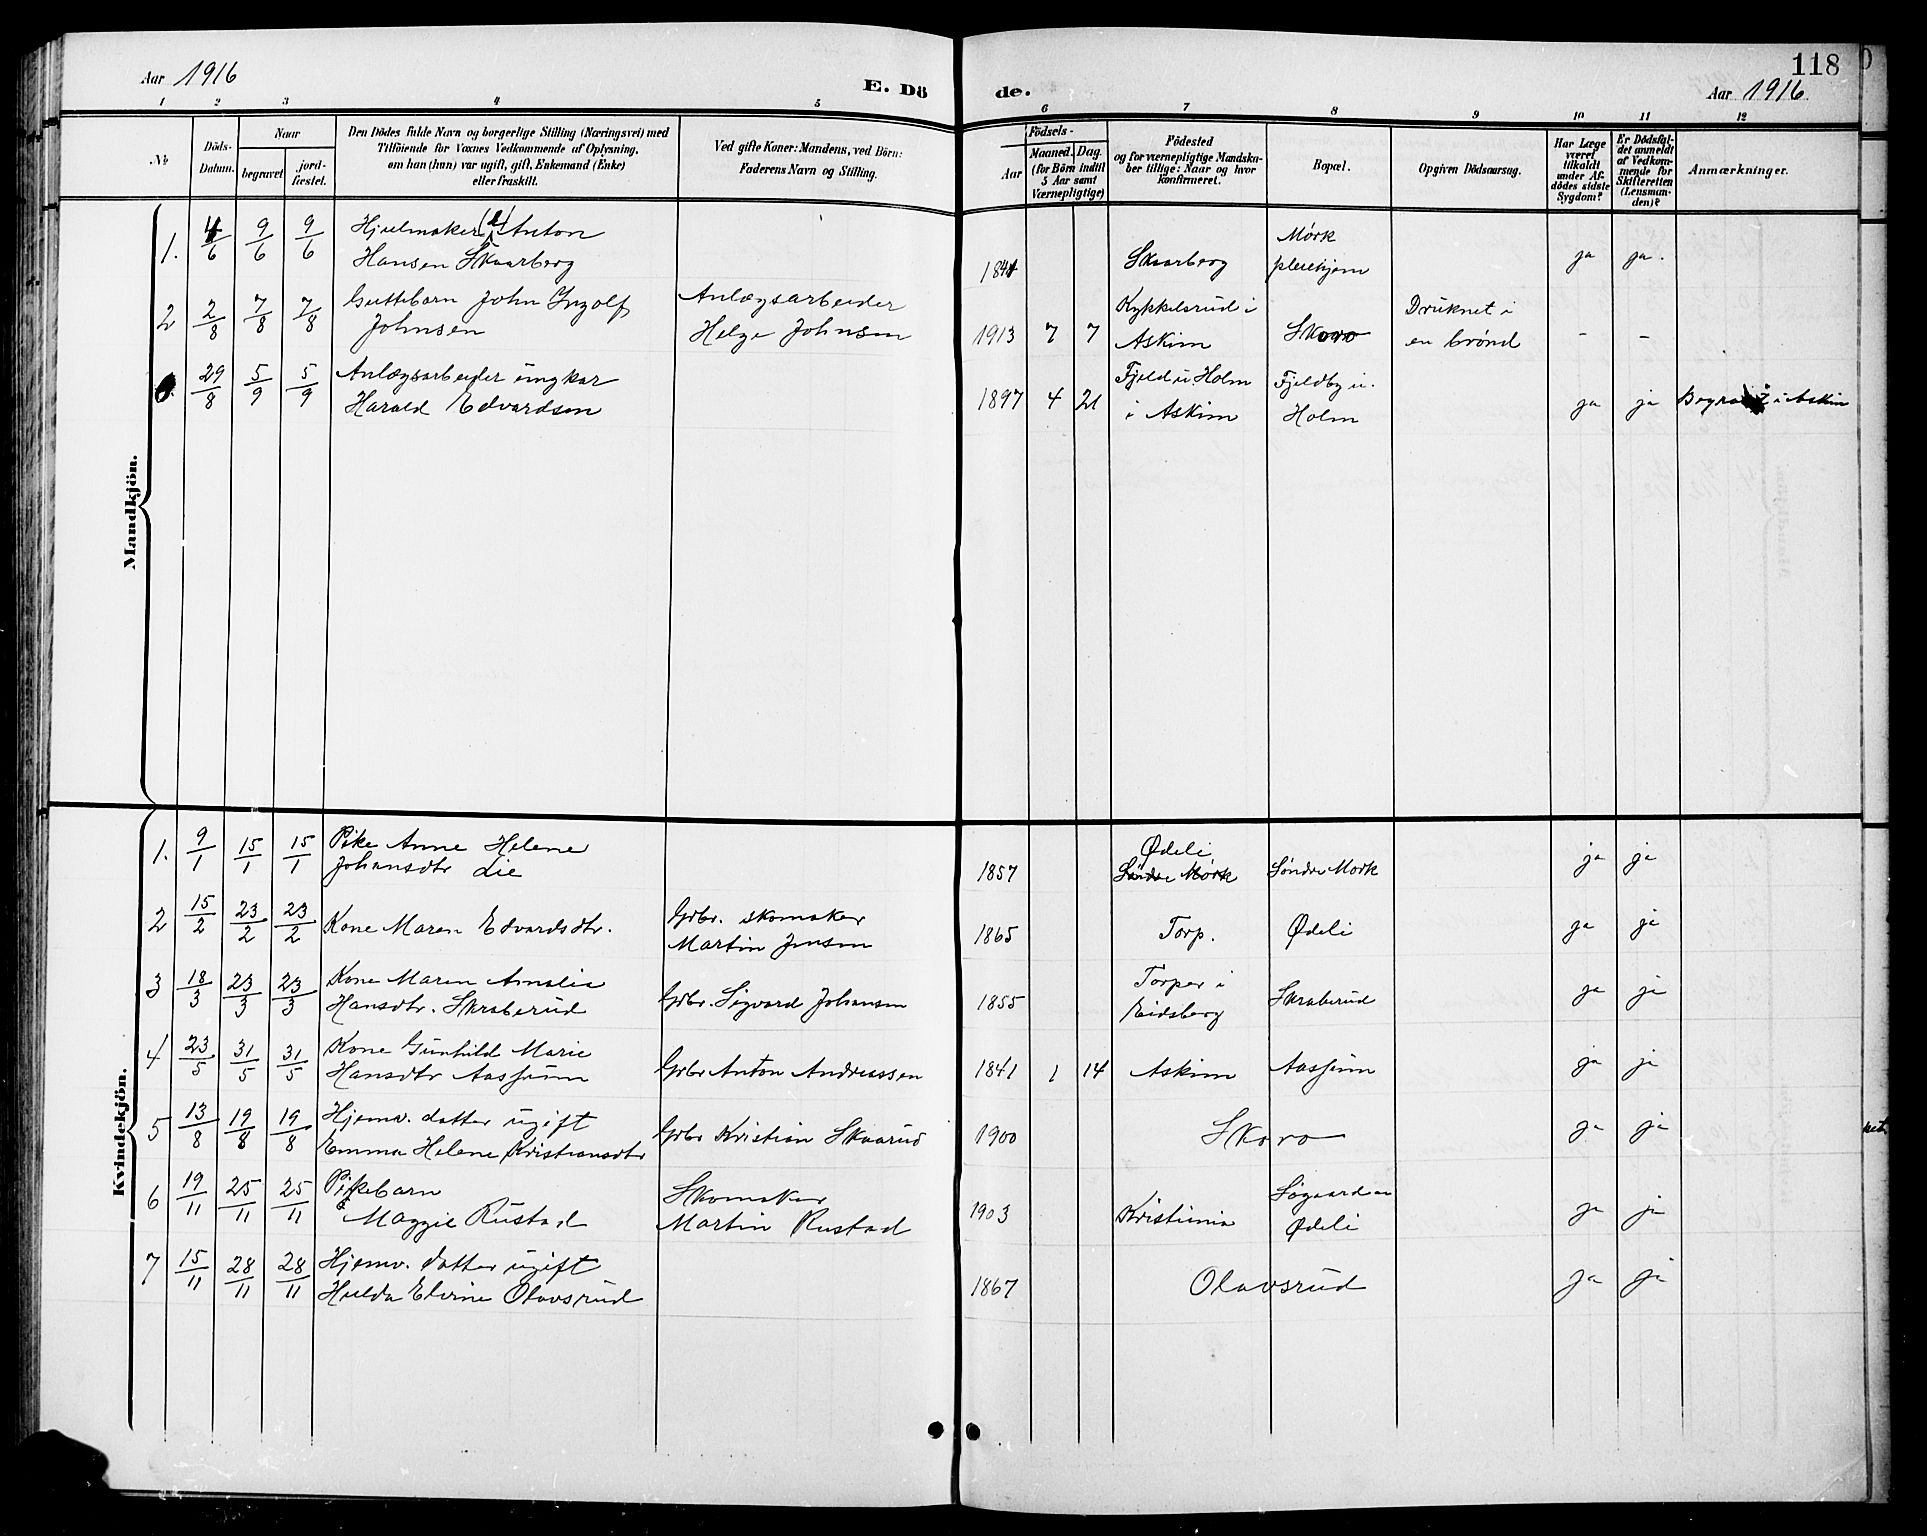 Aar 1916
E. Dö
de.
118
Aar 1916.
1 2 3 4 5 6 7 8 9 10 11 12
No
Döds-
Datum.
Naar
begravet
jord-
fæstet.
Den Dödes fulde Navn og borgerlige Stilling (Næringsvei) med
Tilföiende for Voxnes Vedkommende af Oplysning,
om han (hun) var ugift, gift, Enkemand (Enke)
eller fraskilt.
Ved gifte Koner: Mandens, ved Börn:
Faderens Navn og Stilling.
Födsels-
Aar
Maaned. Dag.
(for Börn indtil
5 Aar samt
Værnepligtige)
Födested
og for værnepligtige Mandska-
ber tillige: Naar og hvor
konfirmeret.
Bopæl.
Opgiven Dödsaarsag.
Har Læge
været
tilkaldt
under Af-
dödes sidste
Sygdom?
Er Dödsfal-
det anmeldt
af Vedkom-
mende for
Skifteretten
(Lensman-
den)?
Anmærkninger.
Mandkjön.
1. 4/6 9/6 9/6 Hjulmaker Anton
Hansen Skaarberg
1841 Skaarberg Mörk
pleiehjem ja ja.
2 2/8 7/8 7/8 Guttebarn John Ingolf
Johnsen
Anlægsarbeider
Helge Johnsen
1913 7 7 Kykkelsrud i
Askim Skoro Druknet i
en brönd - -
29/8 5/9 5/9 Anlægsarbeider ungkar
Harald Edvardsen
1897 4 21 Fjeld u. Holm
i Askim Fjeldby u.
Holm ja ja i Askim
Kvindekjön.
1. 9/1 15/1 15/1 Pike Anne Helene
Johansdtr Lie
1857 Ødeli
Söndre Mörk Söndre Mörk ja ja
2 15/2 23/2 23/2 Kone Maren Edvardsdtr.
Grbr. skomaker
Martin Jensen
1865 Torp. Ødeli ja ja
3 18/3 23/3 23/3 Kone Maren Amalie
Hansdtr. Skraberud
Grbr. Sigvard Johansen
1855 Torper i
Eidsberg Skraberud ja ja
4 23/5 31/5 31/5 Kone Gunhild Marie
Hansdtr Aasheim
Grbr Anton Andreassen
1841 1 14 Askim ja ja
5 13/8 19/8 19/8 Hjemv. datter ugift
Emma Helene Kristiansdtr
Grbr Kristian Skaarud
1900 Skoro ja ja
6 19/11 25/11 25/11 Pikebarn
Maggie Rustad
Skomaker
Martin Rustad
1903 Kristiania Søgaarden
Ødeli ja ja
7 15/11 28/11 28/11 Hjemv. datter ugift
Hulda Elvine Olavsrud
1867 Olavsrud ja ja